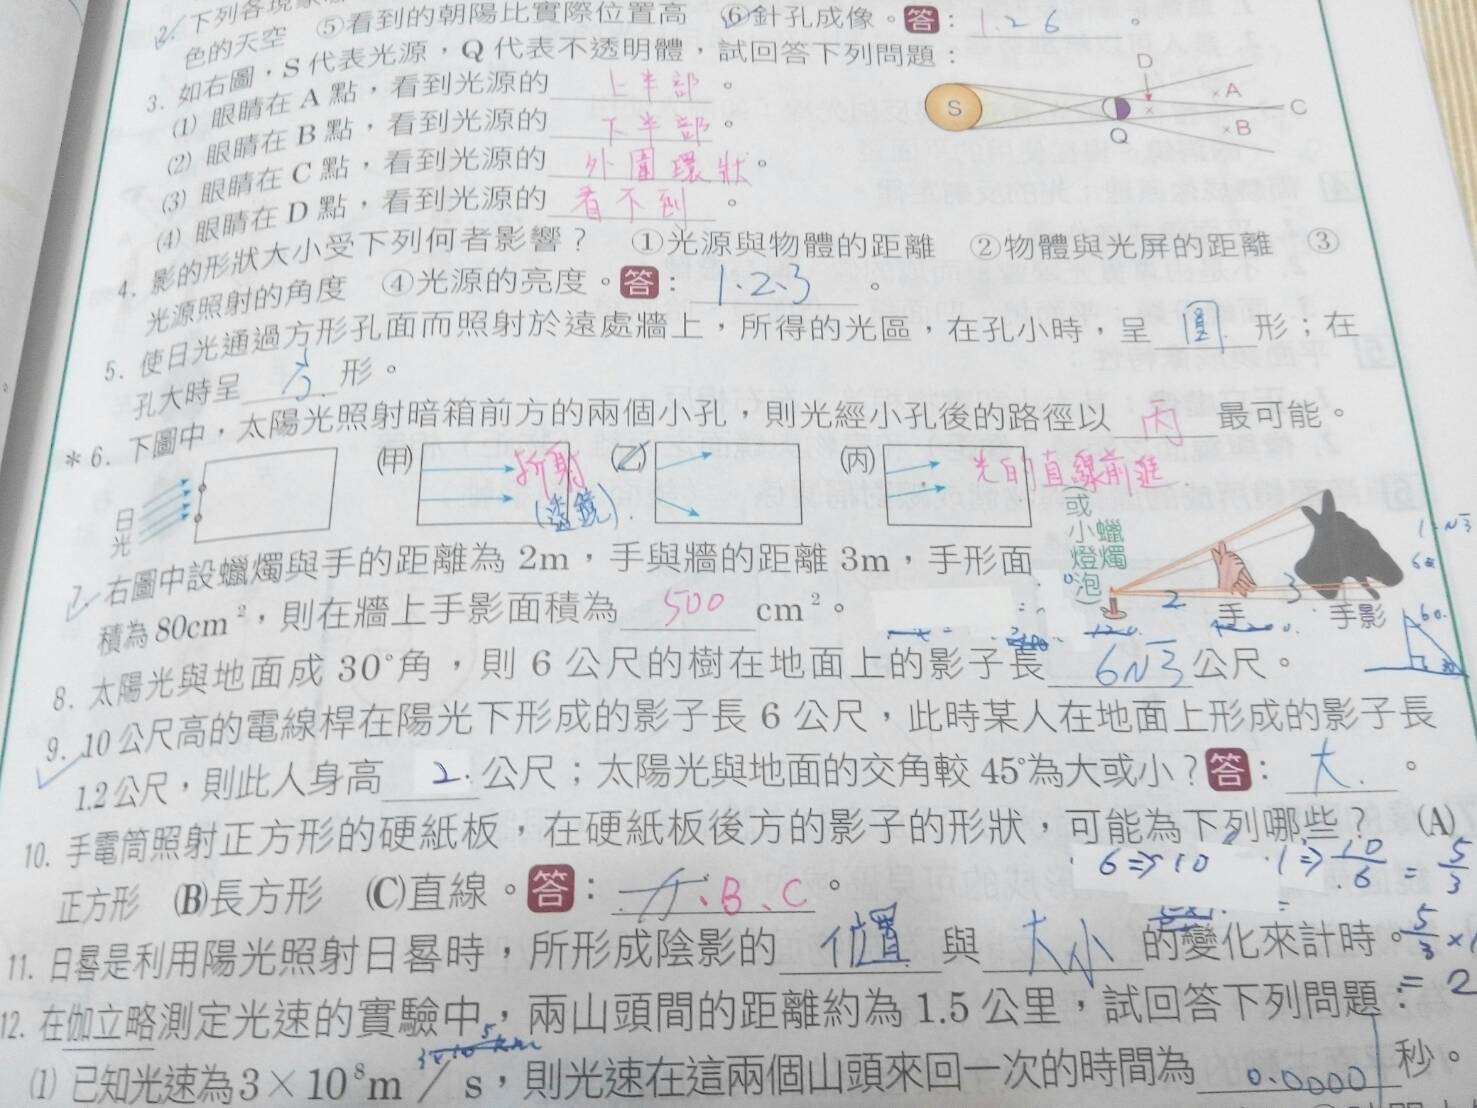 2. 下列各現象
色的天空 ⑤看到的朝陽比實際位置高 ⑥針孔成像。答：1.2.6。
3. 如右圖，S 代表光源，Q 代表不透明體，試回答下列問題：
(1) 眼睛在 A 點，看到光源的 上半部 。
(2) 眼睛在 B 點，看到光源的 下半部 。
(3) 眼睛在 C 點，看到光源的 外圍環狀 。
(4) 眼睛在 D 點，看到光源的 看不到 。
S
D
A
C
B
Q
4. 影的形狀大小受下列何者影響？ ①光源與物體的距離 ②物體與光屏的距離 ③
光源照射的角度 ④光源的亮度。答：1.2.3。
5. 使日光通過方形孔面而照射於遠處牆上，所得的光區，在孔小時，呈 圓 形；在
孔大時呈 方 形。
*6. 下圖中，太陽光照射暗箱前方的兩個小孔，則光經小孔後的路徑以 丙 最可能。
日光
(甲) 折射
(透鏡)
(乙)
(丙) 光的直線前進
7. 右圖中設蠟燭與手的距離為 2m，手與牆的距離 3m，手形面
積為 80cm²，則在牆上手影面積為 500 cm²。
蠟燭
(或小燈泡)
手
手影
2
3
8. 太陽光與地面成 30°角，則 6 公尺的樹在地面上的影子長 6√3 公尺。
1:√3
60
9. 10 公尺高的電線桿在陽光下形成的影子長 6 公尺，此時某人在地面上形成的影子長
1.2 公尺，則此人身高 2. 公尺；太陽光與地面的交角較 45°為大或小？答：大.。
10. 手電筒照射正方形的硬紙板，在硬紙板後方的影子的形狀，可能為下列哪些？ (A)
正方形 (B)長方形 (C)直線。答：、B、C。
6⇒10 1⇒10/6 = 5/3
11. 日晷是利用陽光照射日晷時，所形成陰影的 位置 與 大小 的變化來計時。
5/3×1
= 2
12. 在伽立略測定光速的實驗中，兩山頭間的距離約為 1.5 公里，試回答下列問題：
(1) 已知光速為 3×10⁸m／s，則光速在這兩個山頭來回一次的時間為 0.00001 秒。